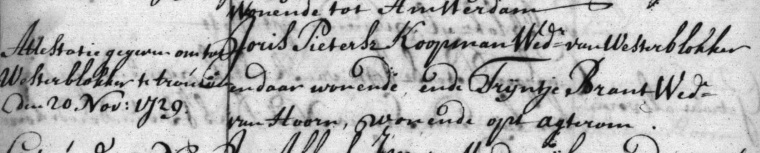 Wonende tot Amsterdam
Attestatie gegeven om tot
Westerblokker te trouwen
den 20. Nov: 1729.
Joris Pietersz Koopman Wed:r van Westerblokker
en daar wonende, ende Trijntje Brant Wed:e
van Hoorn, wonende opt agterom.